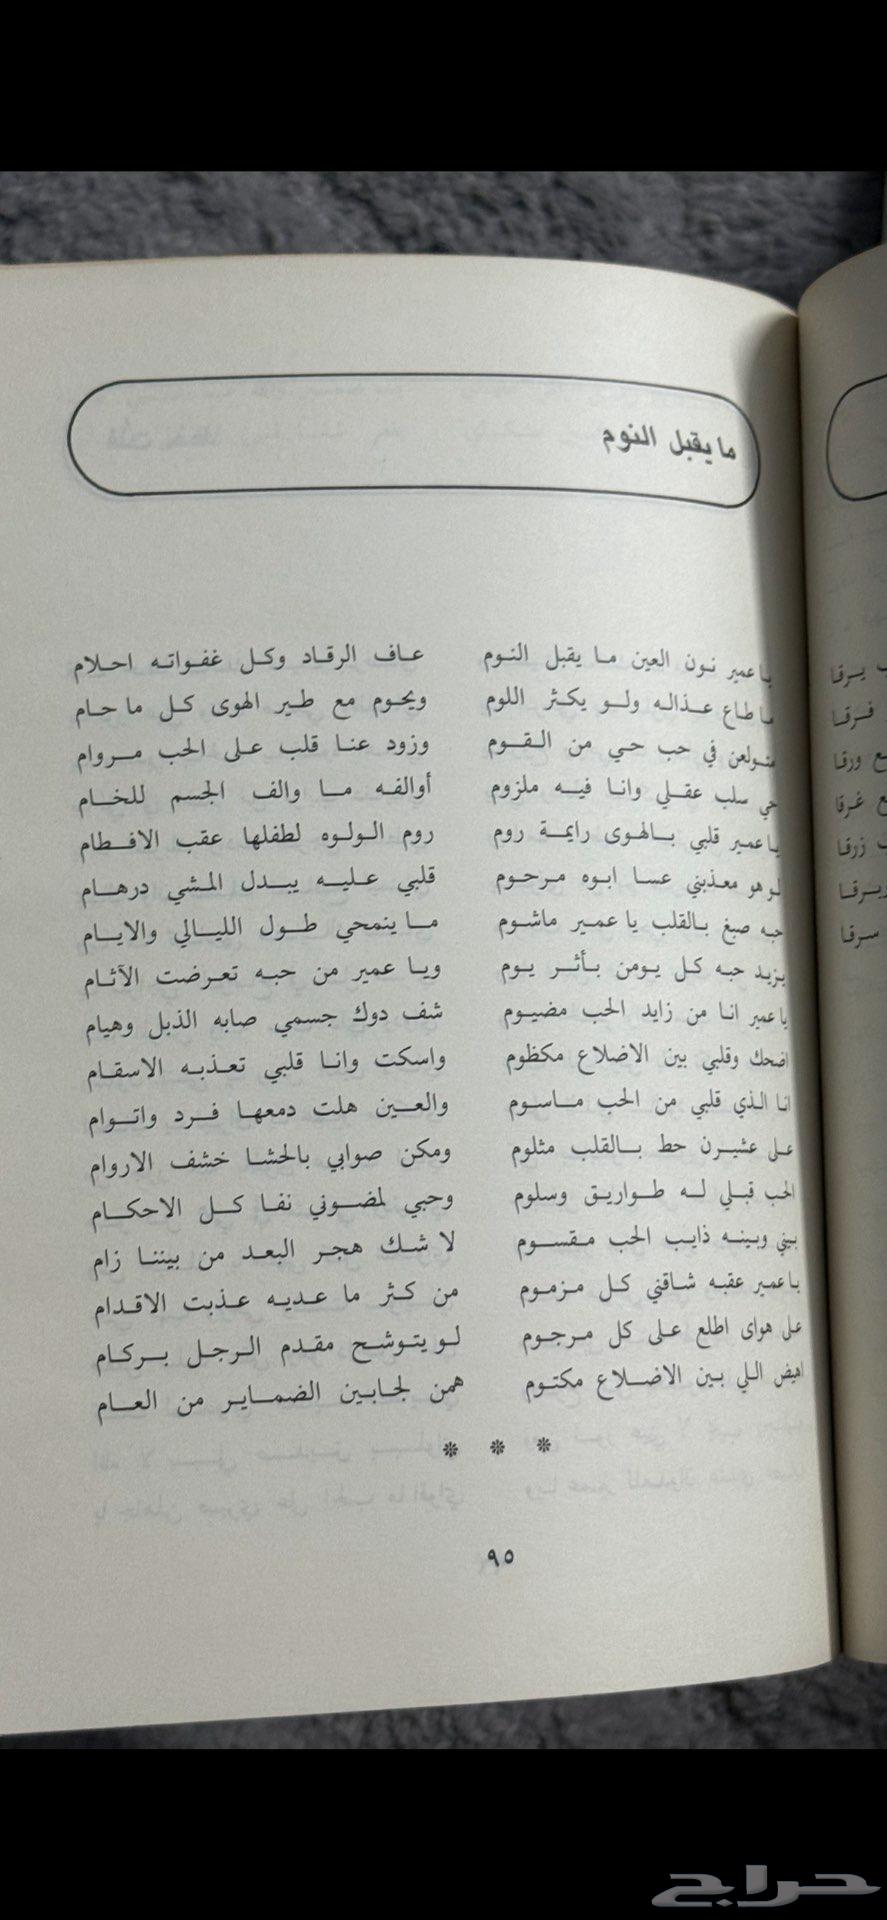 ما يقبل النوم
يا عمير نون العين ما يقبل النوم عاف الرقاد وكل غفواته احلام
ما طاع عذاله ولو يكثر اللوم ويحوم مع طير الهوى كل ما حام
متولعن في حب حي من القوم وزود عنا قلب على الحب مروام
حي سلب عقلي وانا فيه ملزوم أوالفه ما والف الجسم للخام
يا عمير قلبي بالهوى رايمة روم روم الولوه لطفلها عقب الافطام
لو هو معذبني عسا ابوه مرحوم قلبي عليه يبدل المشي درهام
حبه صبغ بالقلب يا عمير ماشوم ما ينمحي طول الليالي والايام
يزيد حبه كل يومن بأثر يوم ويا عمير من حبه تعرضت الآثام
يا عمير انا من زايد الحب مضيوم شف دوك جسمي صابه الذبل وهيام
اضحك وقلبي بين الاضلاع مكظوم واسكت وانا قلبي تعذبه الاسقام
انا الذي قلبي من الحب ماسوم والعين هلت دمعها فرد واتوام
على عشيرن حط بالقلب مثلوم ومكن صوابي بالحشا خشف الاروام
الحب قبلي له طواريق وسلوم وحبي لمضوني نفا كل الاحكام
بيني وبينه ذايب الحب مقسوم لا شك هجر البعد من بيننا زام
يا عمير عقبه شاقني كل مزموم من كثر ما عديه عذبت الاقدام
على هواى اطلع على كل مرجوم لو يتوشح مقدم الرجل بركام
اهيض اللي بين الاضلاع مكتوم همن لجابين الضماير من العام
* * *
٩٥
يرقا
فرقا
ورقا
غرقا
زرقا
سرقا
حراج